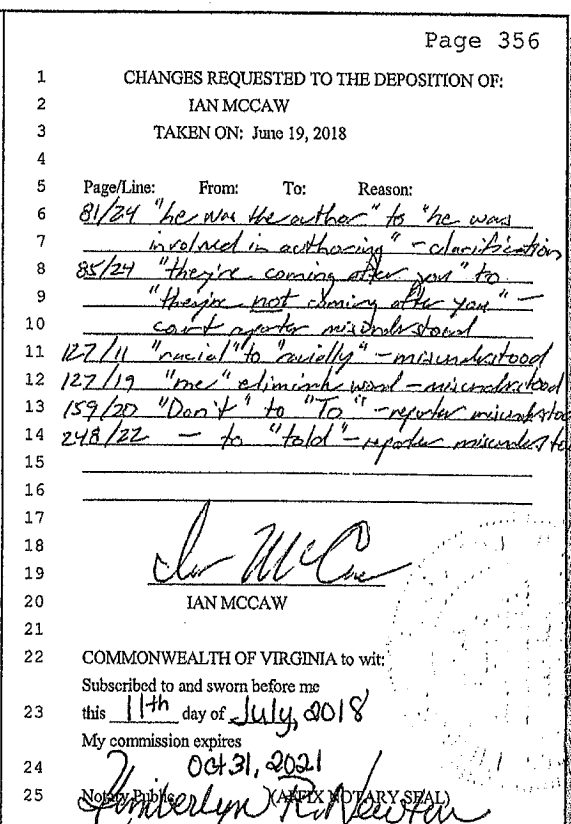 Page 356
1 CHANGES REQUESTED TO THE DEPOSITION OF:
2 IAN MCCAW
3 TAKEN ON: June 19, 2018
4
5 Page/Line: From: To: Reason:
6 81/24 "he was the author" to "he was
7 involved in authoring" - clarification
8 85/24 "they're coming after you" to
9 "they're not coming after you" -
10 court reporter misunderstood
11 127/11 "racial" to "racially" - misunderstood
12 127/19 "me" eliminate word - misunderstood
13 159/20 "Don't" to "To" - reporter misunderstoo
14 248/22 - to "told" - reporter misundersto
15
16
17
18
19 Ian McCaw
20 IAN MCCAW
21
22 COMMONWEALTH OF VIRGINIA to wit:
Subscribed to and sworn before me
23 this 11th day of July, 2018
My commission expires
24 Oct 31, 2021
25 Notary Public (AFFIX NOTARY SEAL)
Kimberlyn R. Newton